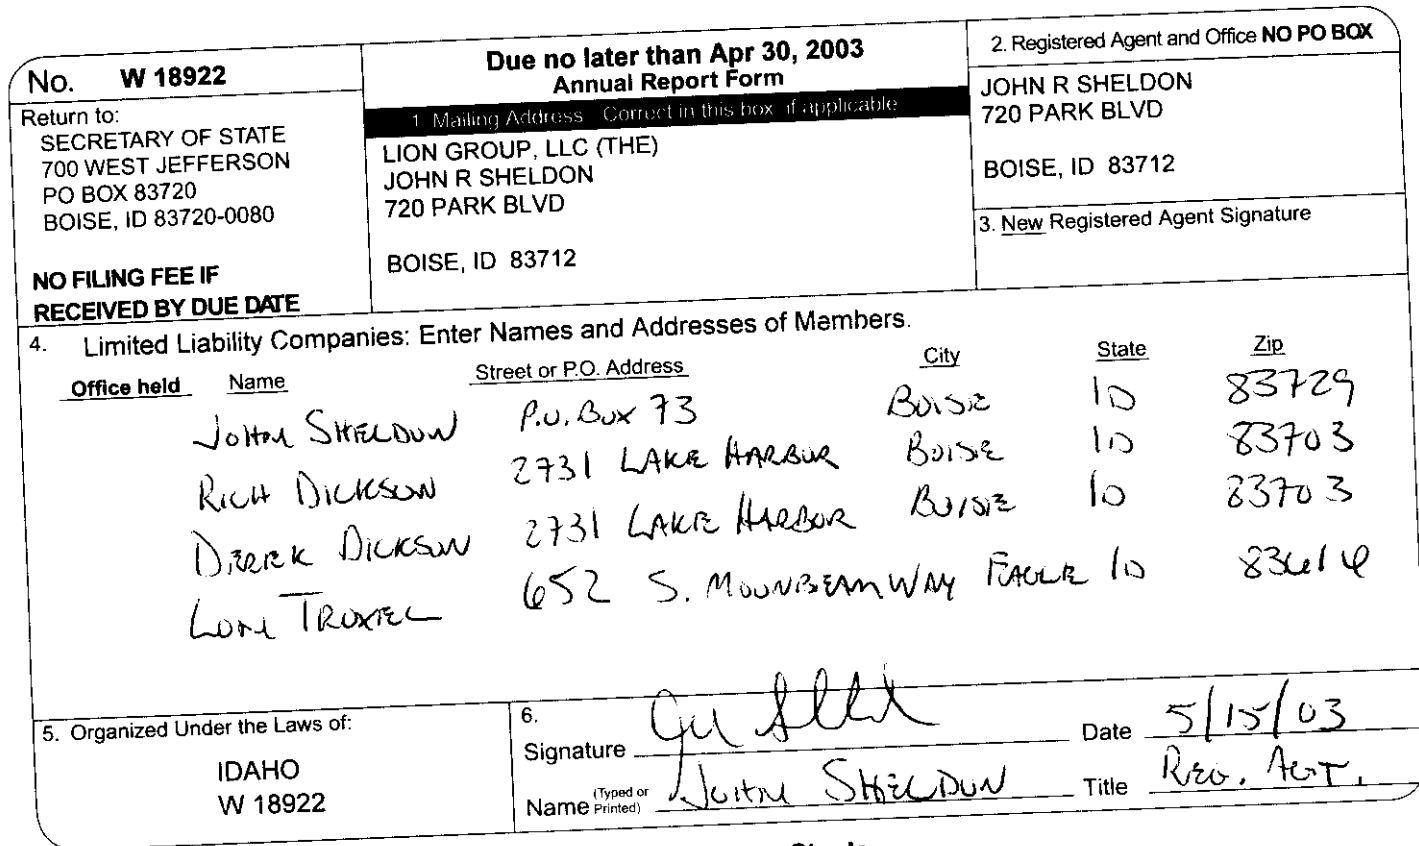 No. W 18922
Return to:
SECRETARY OF STATE
700 WEST JEFFERSON
PO BOX 83720
BOISE, ID 83720-0080
NO FILING FEE IF
RECEIVED BY DUE DATE
Due no later than Apr 30, 2003
Annual Report Form
1. Mailing Address Correct in this box if applicable
LION GROUP, LLC (THE)
JOHN R SHELDON
720 PARK BLVD
BOISE, ID 83712
2. Registered Agent and Office NO PO BOX
JOHN R SHELDON
720 PARK BLVD
BOISE, ID 83712
3. New Registered Agent Signature
4. Limited Liability Companies: Enter Names and Addresses of Members.
Office held Name Street or P.O. Address City State Zip
JOHN SHELDON P.O. BOX 73 BOISE ID 83729
RICH DICKSON 2731 LAKE HARBOR BOISE ID 83703
DEREK DICKSON 2731 LAKE HARBOR BOISE ID 83703
TROXEL 652 S. MOONBEAM WAY EAGLE ID 83616
5. Organized Under the Laws of:
IDAHO
W 18922
6.
Signature Date 5/15/03
Name (Typed or Printed) JOHN SHELDON Title REG. AGT.